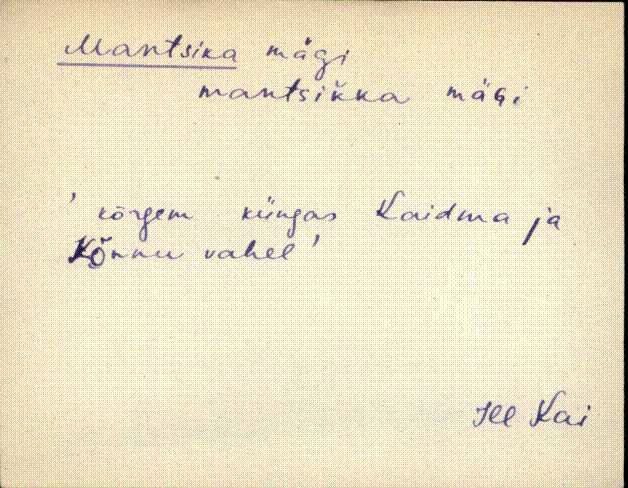 Mantsika mägi
mantsikka mäGi
' kõrgem küngas Kaidma ja
Kõnnu vahel '
Jll Kai